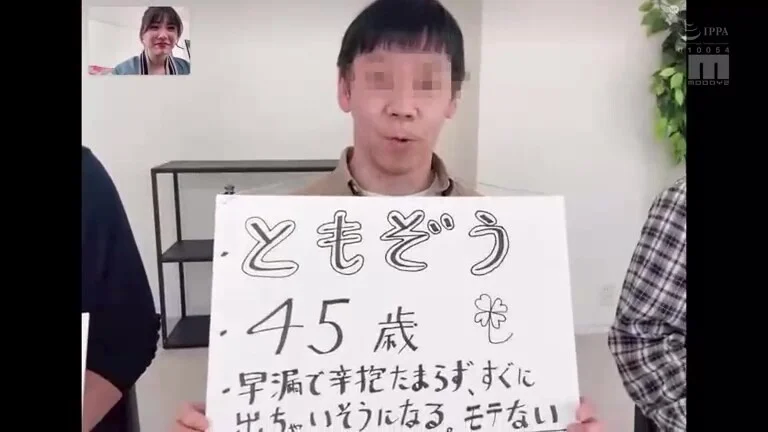 IPPA
MOODYZ
・ともぞう
・45歳
・早漏で辛抱たまらず、すぐに
出ちゃいそうになる。モテない